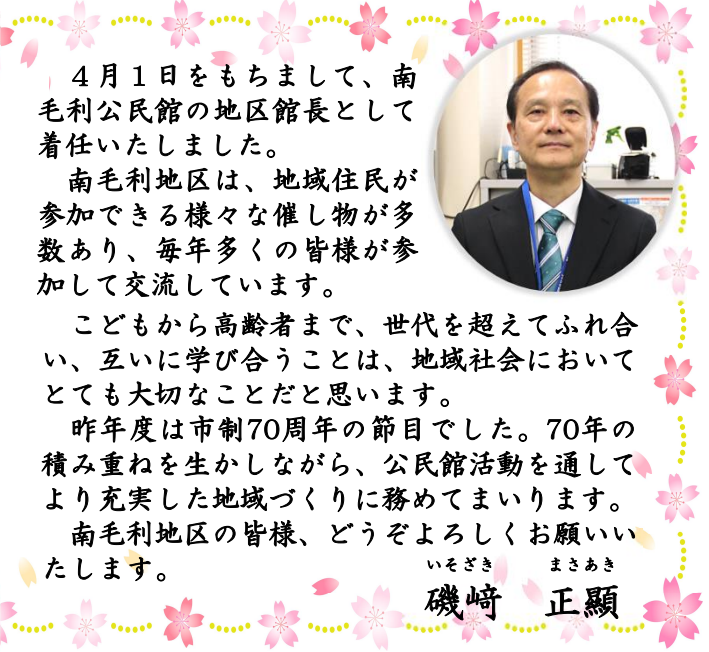 ４月１日をもちまして、南
毛利公民館の地区館長として
着任いたしました。
南毛利地区は、地域住民が
参加できる様々な催し物が多
数あり、毎年多くの皆様が参
加して交流しています。
こどもから高齢者まで、世代を超えてふれ合
い、互いに学び合うことは、地域社会において
とても大切なことだと思います。
昨年度は市制70周年の節目でした。70年の
積み重ねを生かしながら、公民館活動を通して
より充実した地域づくりに務めてまいります。
南毛利地区の皆様、どうぞよろしくお願いい
たします。
いそざき　まさあき
磯﨑　正顯